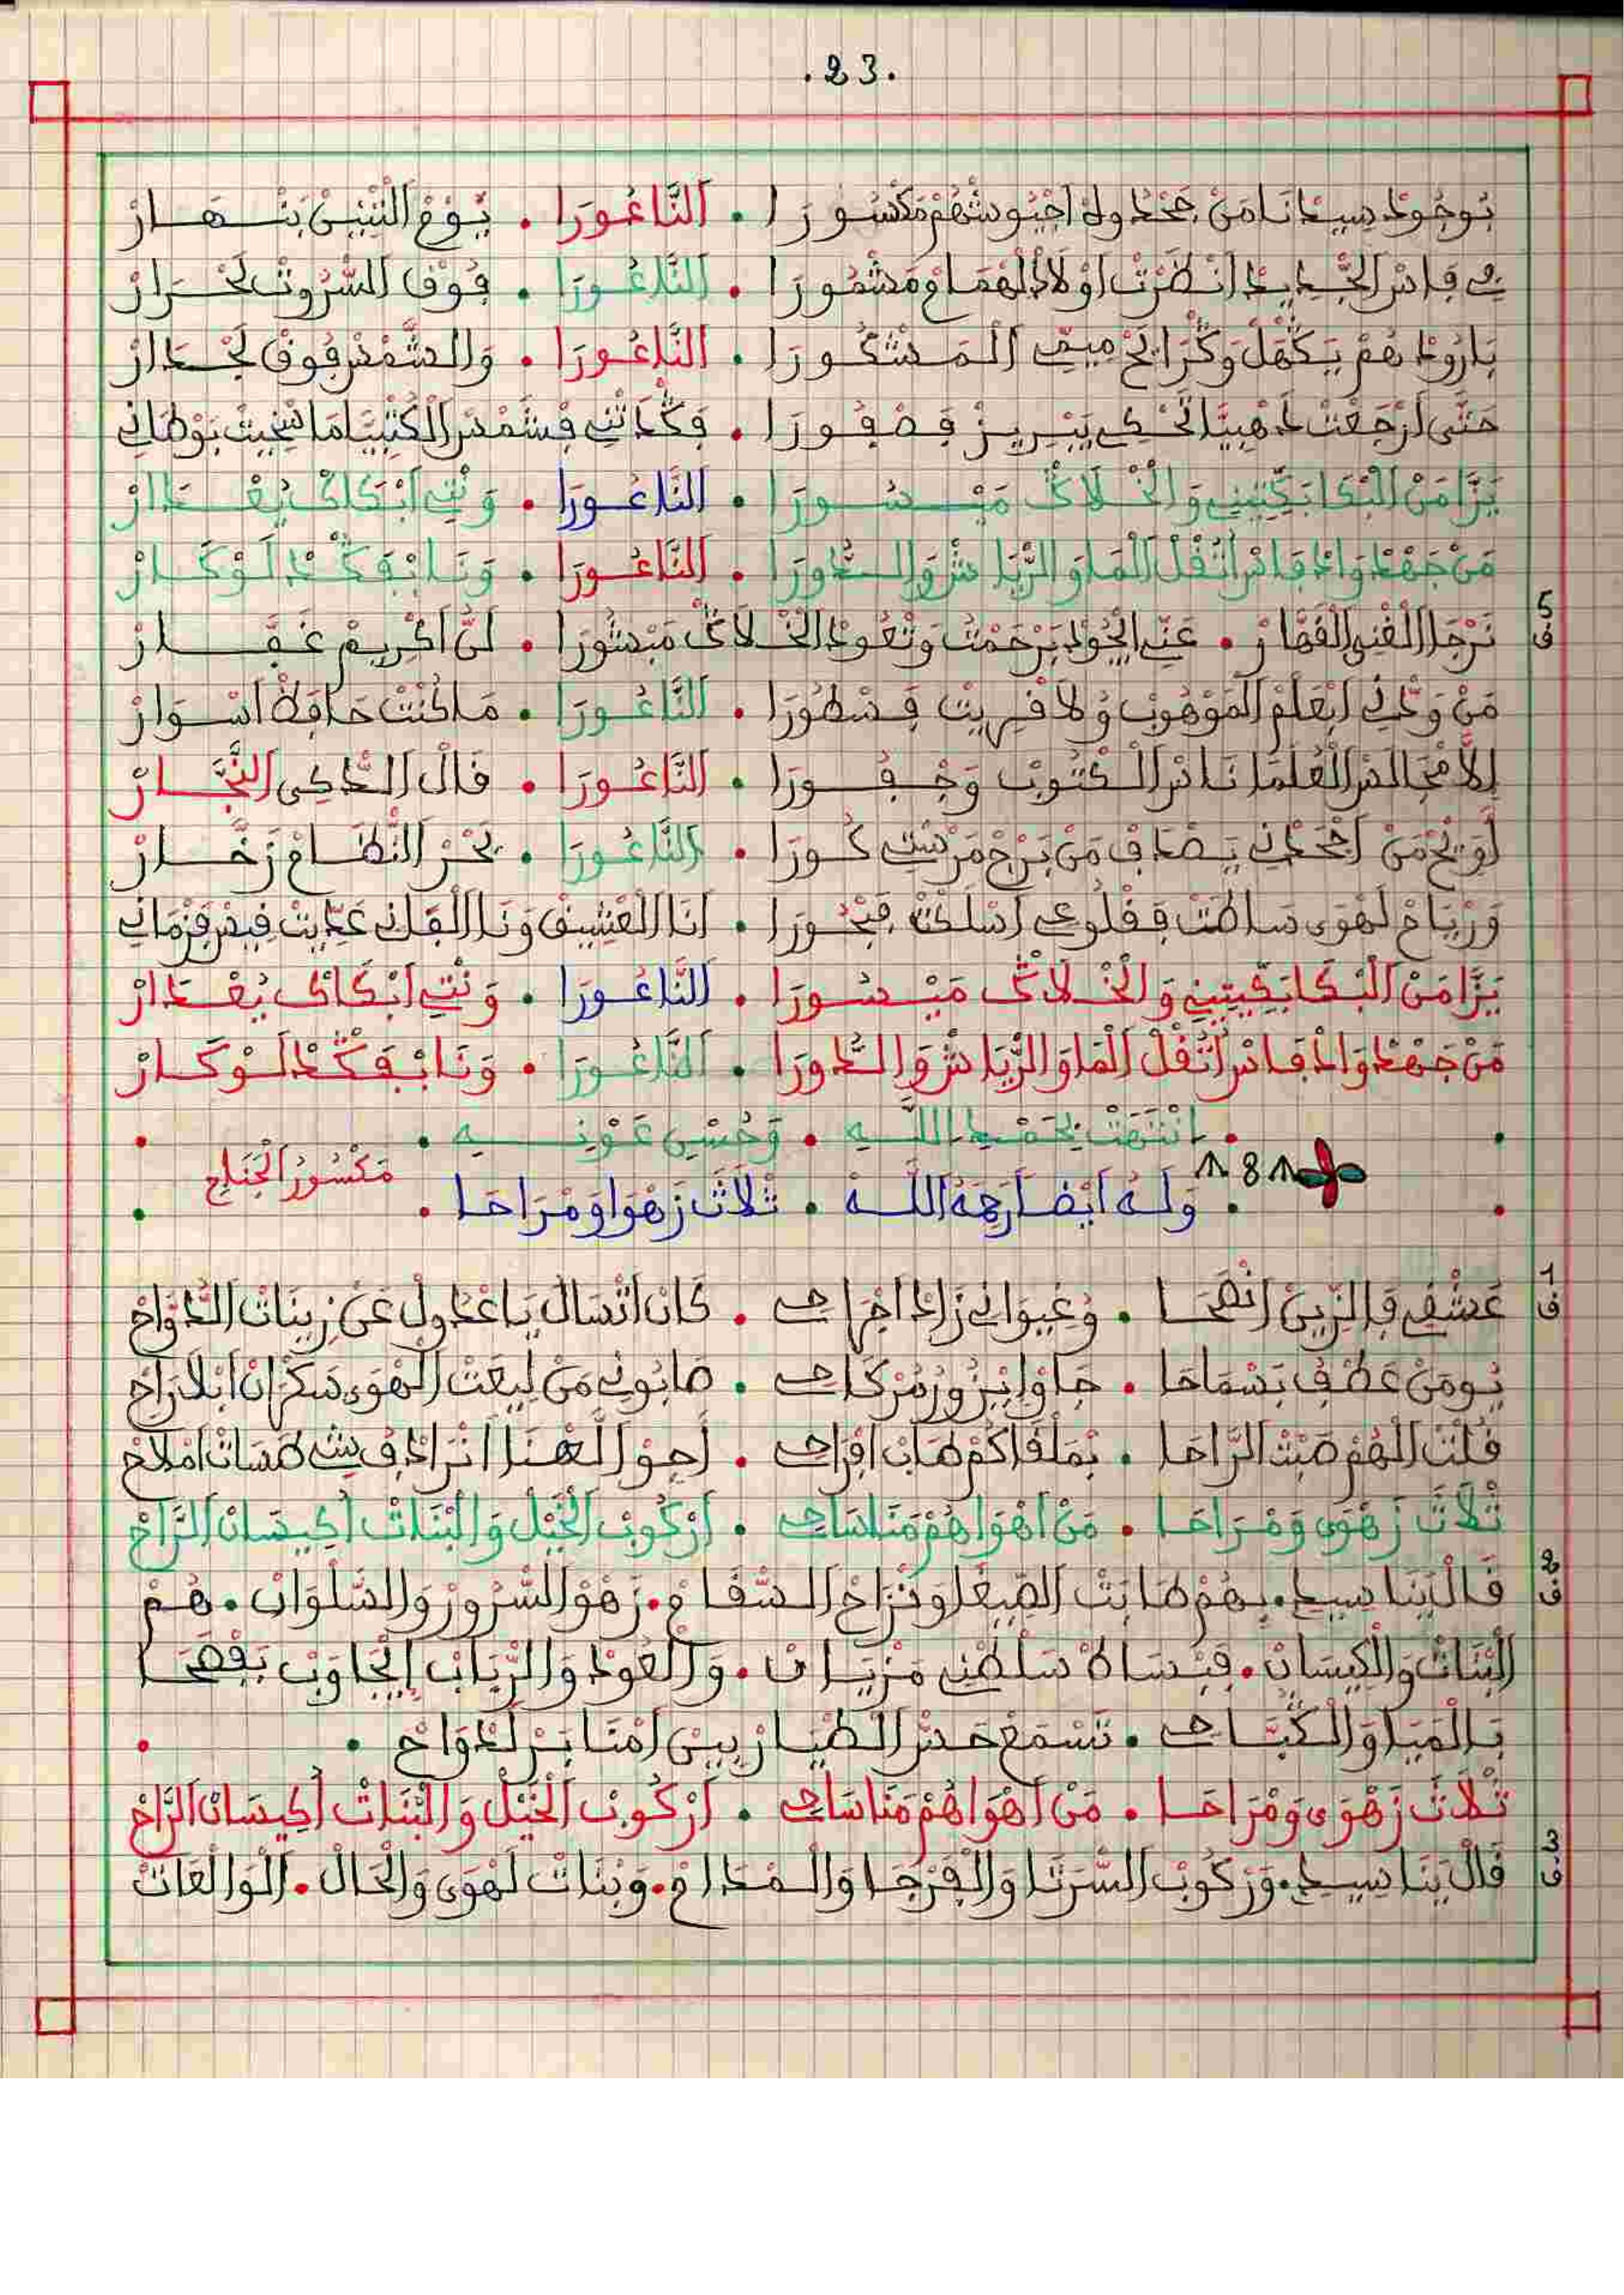 .23.
بُوجُودْ سِيدْنَا مَنْ جَحْدُولْ اجْيُوشْهُمْ مَكْسُورَا . النَّاعُورَا . يُومْ التِّيبِينْ يَنْهَارْ
فَاسْ الجْدِيدْ انْظَرْتْ اوْلَادْ الْهُمَامْ مَشْمُورَا . النَّاعُورَا . فُوقْ السُّرُوتْ لَحْرَارْ
بَارُودْ هُمْ يَكْهَلْ وَ الْمَشْكُورَا . النَّاعُورَا . وَالشَّمْسْ فُوقْ لَجْدَارْ
حَتَّى ارْجَعْتْ ذَهْبِيَّا تَحْكِي يَبْرِيزْ فِصْفُورَا .
يَزَّا مَنْ الْبْكَا بَكِّيتِينِي وَالْخْلَاڭْ مَيْسُورَا . النَّاعُورَا . وَنْتِ ابْكَاكْ بُغْدَارْ
مَنْ جَهْدْ وَادْ فَاسْ اتْنُقْلْ الْمَا وَالرِّيَاشْ وَالدُّورَا . النَّاعُورَا . وَنَا بْفَكْدْ لَوْكَارْ
5
ف
نَرْجَا الْغْنِي الْقَهَّارْ . عَنِّي ايْجُودْ بَرْحَمْتُ وَتْعُودْ الْخْلَاڭْ مَبْشُورَا . لَنُّ اكْرِيمْ غَفَّارْ
مَنْ وَدْنِي ابْعَلْمْ الْمَوْهُوبْ وُلَا قْرِيتْ فَسْطُورَا . النَّاعُورَا . مَا كُنْتْ حَافَظْ اسْوَارْ
إِلَّا مْجَالَسْ الْعُلَمَا نَاسْ الكْتُوبْ وَجْفُورَا . النَّاعُورَا . قَالْ الدَّاكِي النَّجَّارْ
لَوِيحْ مَنْ اجْحَدْنِي يَصْدَافْ مَنْ بَرْجْ مَرْسْتِي كُورَا . النَّاعُورَا . بَحْرْ النْظَامْ زَخَّارْ
وَرْيَاحْ لَهْوَى سَاطَتْ فِقْلُوعِي اسْلَكْتْ فَبْحُورَا . انَا الْعْشِيقْ وَنَا الْفَانِي عَدِّيتْ فِيسْ فَزْمَانِي
يَزَّا مَنْ الْبْكَا بَكِّيتِينِي وَالْخْلَاڭْ مَيْسُورَا . النَّاعُورَا . وَنْتِ ابْكَاكْ بُغْدَارْ
مَنْ جَهْدْ وَادْ فَاسْ اتْنُقْلْ الْمَا وَالرِّيَاشْ وَالدُّورَا . النَّاعُورَا . وَنَا بْفَكْدْ لَوْكَارْ
. انْتَهَتْ بِحَمْدِ اللَّهِ . وَحُسْنِ عَوْنِهِ .
8
. وَلَهُ أَيْضًا رَحِمَهُ اللَّه . ثْلَاثْ زَهْوَا وَمْرَاحَا . مَكْسُورُ الْجَنَاحْ
1
ف
عَشْقِي فَالزِّينْ انْضْحَا . وُغِيوَانِي زَادْ اجْرَاحِي . كَانْ اتْسَالْ يَا عْدُولْ عَنْ زِينَاتْ الدْوَّاحْ
يُومَنْ عَطْفُ بَسْمَاحَا . جَاوْا ابْزُورْ مُرْكَاحِي . صَابُونِي مَنْ لِيعَتْ الْهْوَى سَكْرَانْ ابْلَا رَاحْ
قُلْتْ الْهُمْ صَبْتْ الرَّاحَا . بَمْلْقَاكُمْ طَابْ افْرَاحِي . امْلَاحْ
ثْلَاثْ زَهْوَى وَمْرَاحَا . مَنْ اهْوَاهُمْ مَنَاسَاحِي . ارْكُوبْ الْخَيْلْ وَالْبْنَاتْ اكِيسَانْ الرَّاحْ
2
ف
قَالْ يَنَا سِيدِي . بِهُمْ طَابَتْ الصِّيغَا وَنْزَاحْ السّْقَامْ . زَهْوْ السّْرُورْ وَالسّْلْوَانْ . هُمْ
الْبْنَاتْ وَالْكِيسَانْ . فَبْسَاطْ سَلْطْنِي مَزْيَانْ . وَالْعُودْ وَالرّْبَابْ ايْجَاوَبْ بَفْصْحَا
بَالْمَيَا وَالڭْبَّاحِي . تَسْمَعْ حَسّْ الطْيَارْ بِينْ امْنَابَرْ لَدْوَاحْ .
ثْلَاثْ زَهْوَى وَمْرَاحَا . مَنْ اهْوَاهُمْ مَنَاسَاحِي . ارْكُوبْ الْخَيْلْ وَالْبْنَاتْ اكِيسَانْ الرَّاحْ
3
ف
قَالْ يَنَا سِيدِي . وَرْكُوبْ السَّرْتَا وَالْفَرْجَا وَالْمْدَامْ . وَبْنَاتْ لَهْوَى وَالْحَالْ . الْوَالْعَاتْ